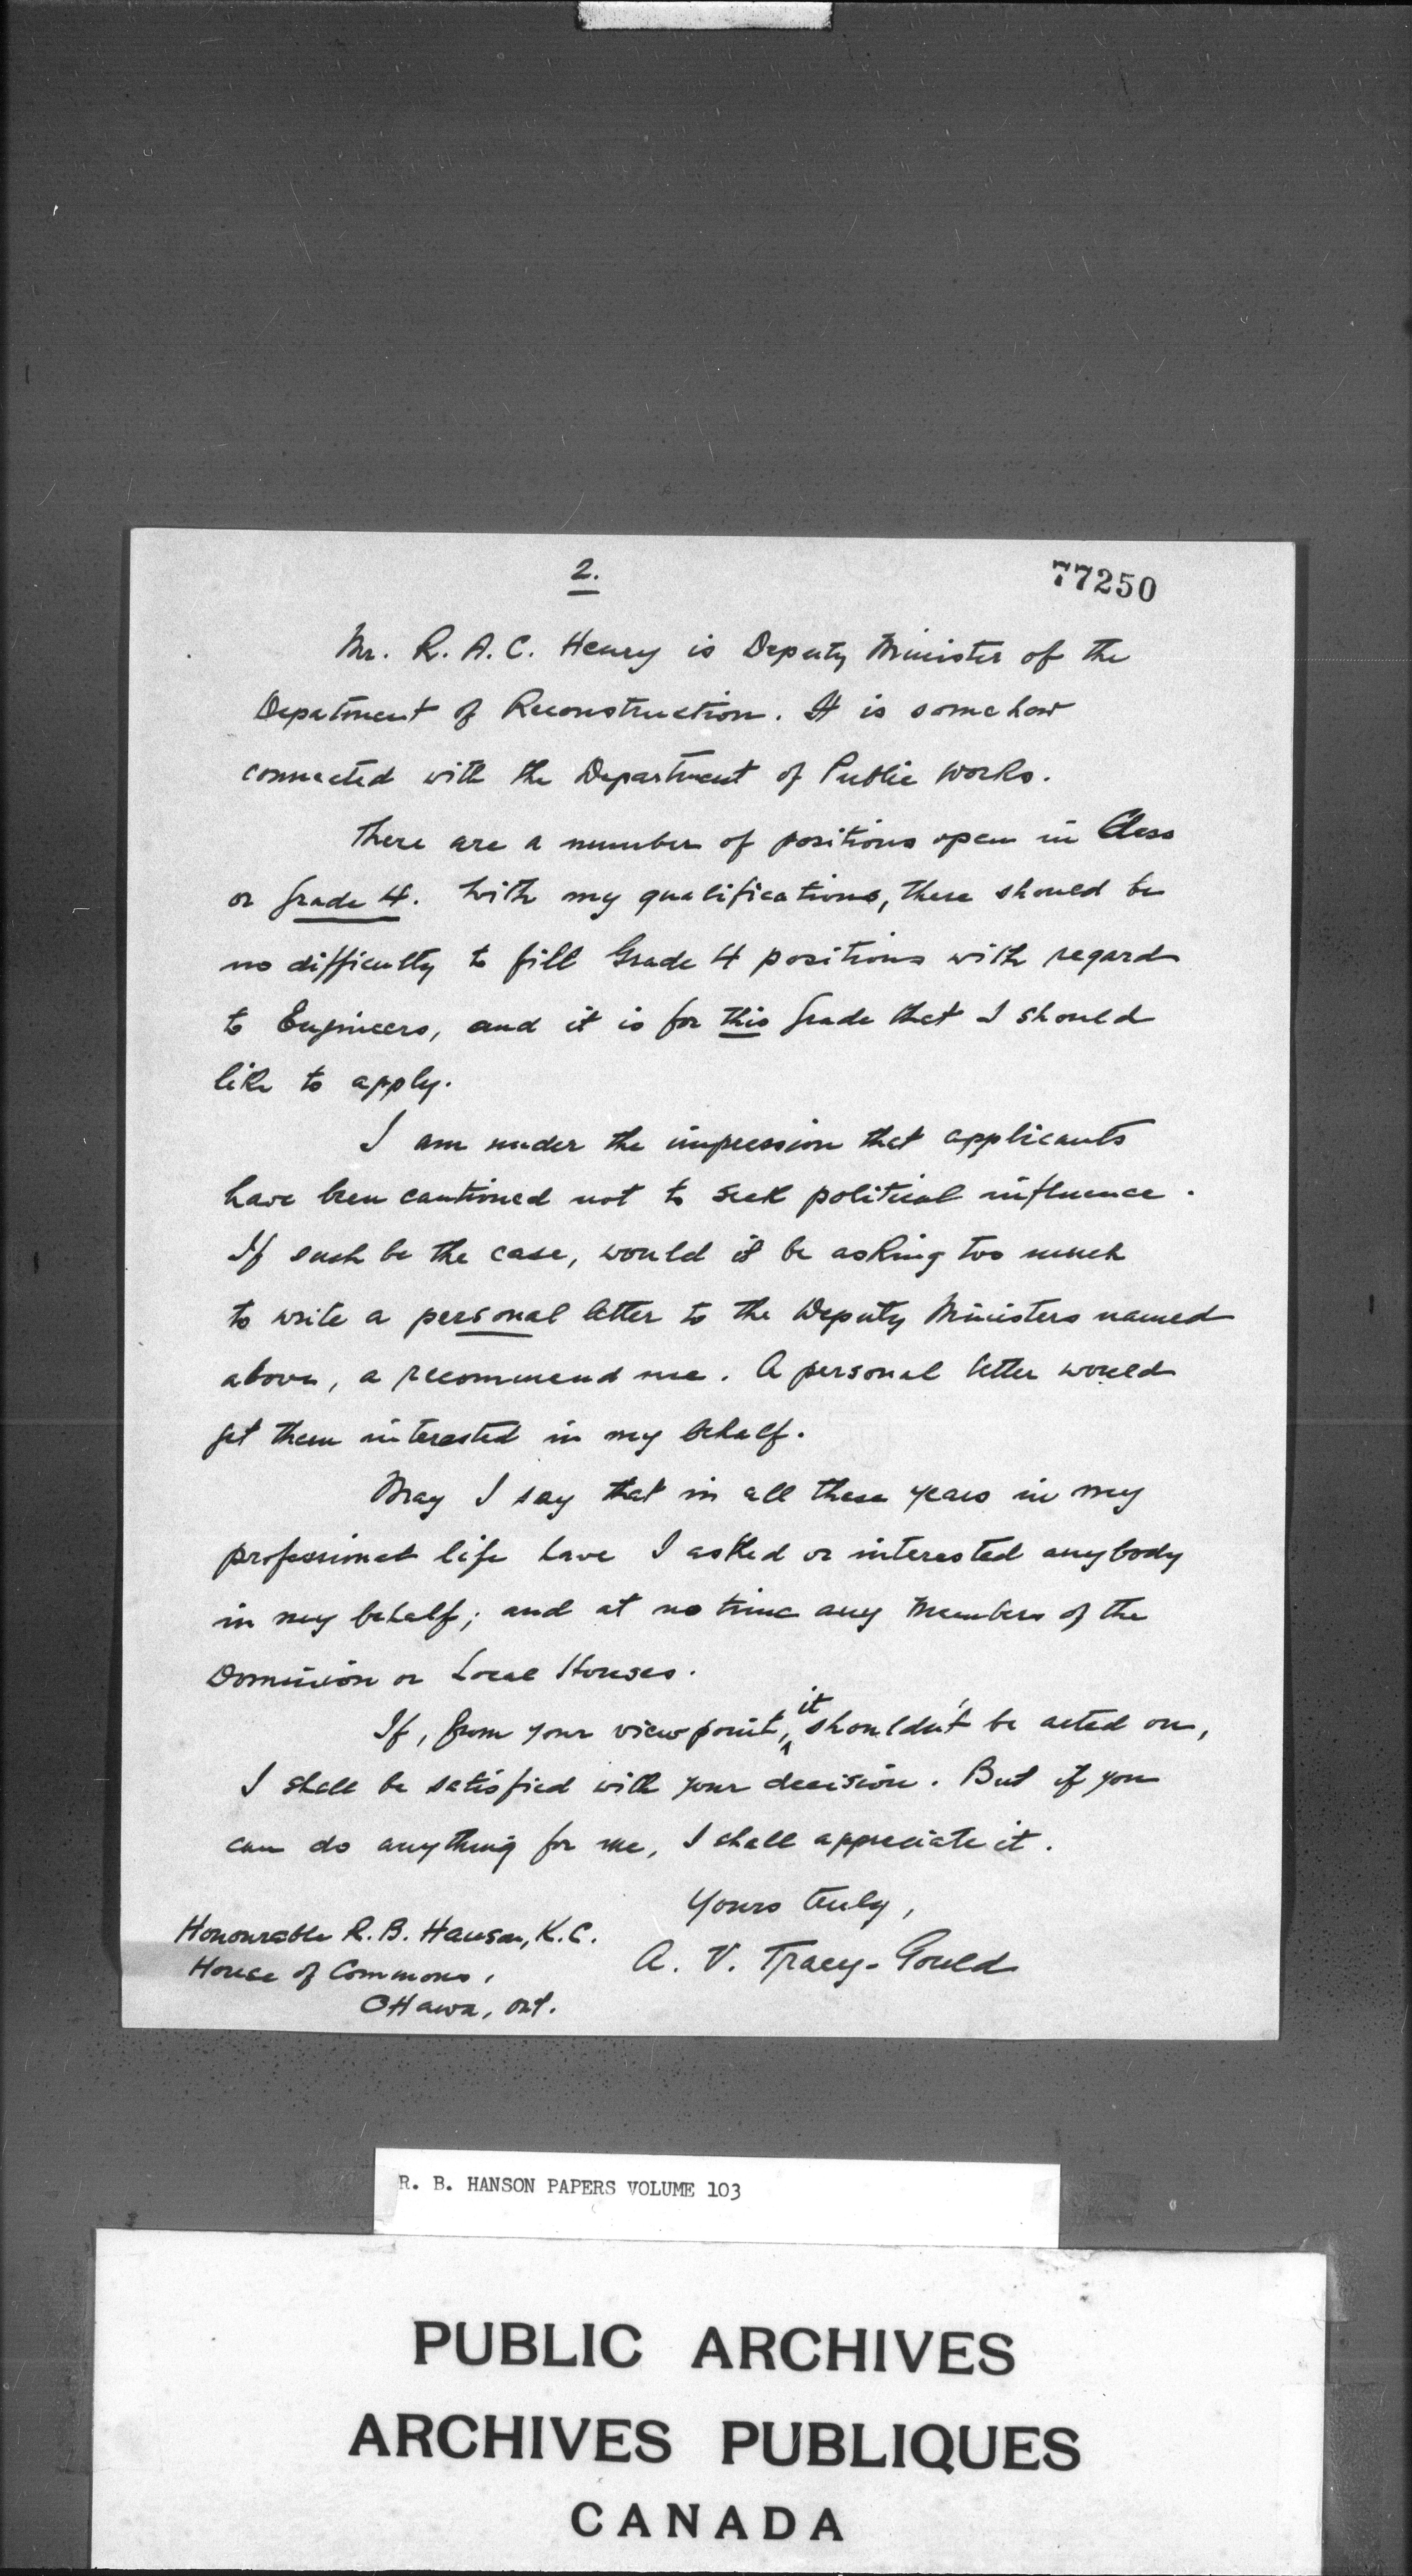 2.
77250
Mr. R. A. C. Henry is Deputy Minister of the
Depatment of Reconstruction. It is somehow
connected with the Department of Public Works.
There are a number of positions open in Class
or Grade 4. With my qualifications, there should be
no difficulty to fill Grade 4 positions with regard
to Engineers, and it is for this Grade that I should
like to apply.
I am under the impression that applicants
have been cautioned not to seek political influence.
If such be the case, would it be asking too much
to write a personal letter to the Deputy Ministers named
above, a recommend me. A personal letter would
get them interested in my behalf.
May I say that in all these years in my
professional life have I asked or interested anybody
in my behalf; and at no time any Members of the
Dominion or Local Houses.
If, from your viewpoint, it shouldn't be acted on,
I shall be satisfied with your decision. But if you
can do anything for me, I shall appreciate it.
Yours truly,
A. V. Tracy-Gould
Honourable R. B. Hanson, K.C.
House of Commons,
Ottawa, Ont.
R. B. HANSON PAPERS VOLUME 103
PUBLIC ARCHIVES
ARCHIVES PUBLIQUES
CANADA